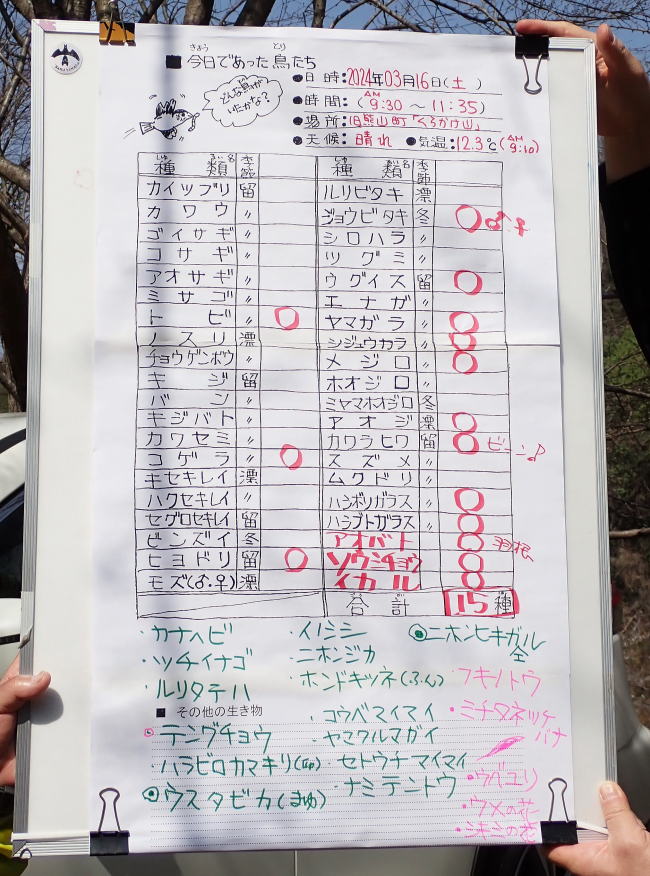 きょう とり
■ 今日であった鳥たち
どんな鳥がいたかな?
●日時:2024年03月16日(土)
●時間:(AM 9:30 ～ 11:35)
●場所:旧熊山町「くろかけ山」
●天候:晴れ ●気温:12.3℃(AM 9:10)
種類名 季節 種類名 季節
カイツブリ 留 ルリビタキ 漂
カワウ 〃 ジョウビタキ 冬 ○ ♂♀
ゴイサギ 〃 シロハラ 〃
コサギ 〃 ツグミ 〃
アオサギ 〃 ウグイス 留 ○
ミサゴ 〃 エナガ 〃
トビ 〃 ○ ヤマガラ 〃 ○
ノスリ 漂 シジュウカラ 〃 ○
チョウゲンボウ 〃 メジロ 〃 ○
キジ 留 ホオジロ 〃
バン 〃 ミヤマホオジロ 冬
キジバト 〃 アオジ 漂 ○
カワセミ 〃 カワラヒワ 留 ○ ビーン♪
コゲラ 〃 ○ スズメ 〃
キセキレイ 漂 ムクドリ 〃
ハクセキレイ 〃 ハシボソガラス 〃 ○
セグロセキレイ 留 ハシブトガラス 〃 ○
ビンズイ 冬 アオバト ○ 羽根
ヒヨドリ 留 ○ ソウシチョウ ○
モズ(♂・♀) 漂 イカル ○
合計 15種
・カナヘビ ・イノシシ ◎ニホンヒキガル
・ツチイナゴ ・ニホンジカ
・ルリタテハ ・ホンドキツネ(ふん) ・フキノトウ
■ その他の生き物 ・コウベマイマイ ・ミチタネツケバナ
テングチョウ ・ヤマクルマガイ
・ハラビロカマキリ(卵) ・セトウチマイマイ ・ウベユリ
◎ウスタビガ(まゆ) ・ナミテントウ ・ウメの花